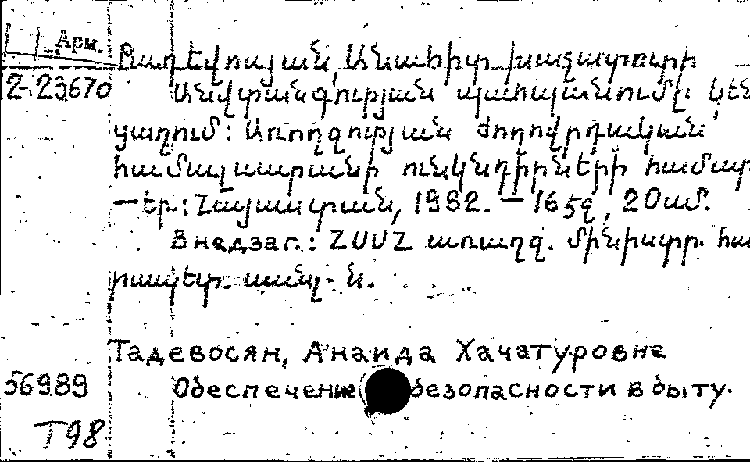 Арм.
Թադևոսյան, Անահիտ Խաչատուրի
2-23670 Անվտանգության պահպանումը կեն
ցաղում: Առողջության ժողովրդական
համալսարանի ունկնդիրների համար
—Եր.: Հայաստան, 1982. — 165 էջ, 20 սմ.
Внадзаг.: ՀՍՍՀ առողջ. մինիստր. հա
րապետ. սանլ. ն.
Тадевосян, Анаида Хачатуровна
56989 Обеспечение безопасности в быту.
Т98